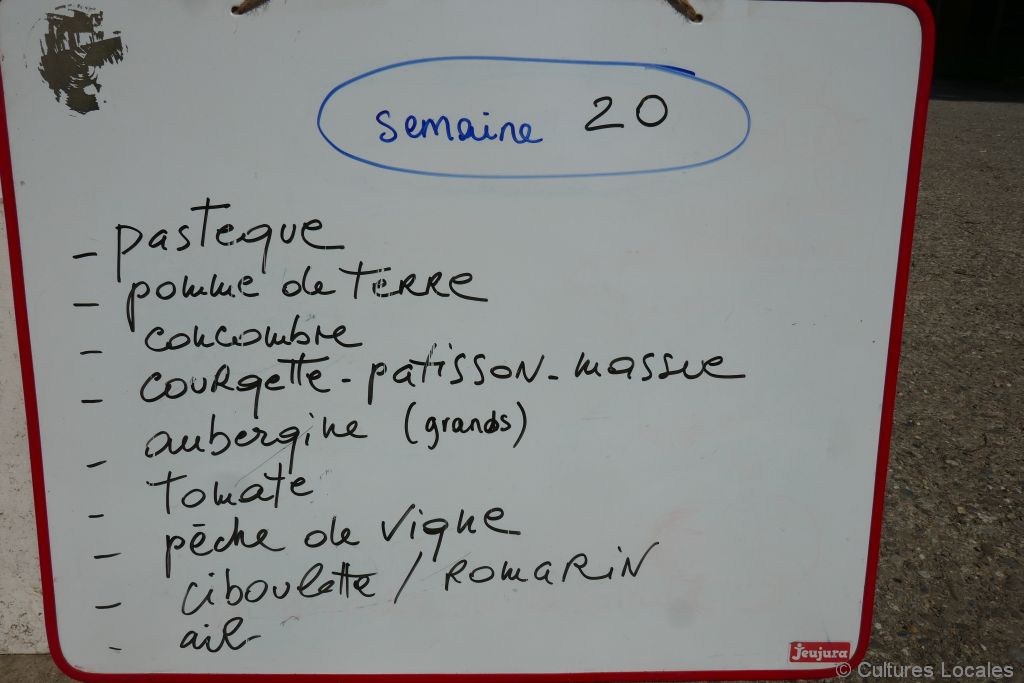 semaine 20
- pasteque
- pomme de terre
- concombre
- courgette - patisson - massue
- aubergine (grands)
- tomate
- pêche de vigne
- ciboulette / romarin
- ail
Jeujura
© Cultures Locales